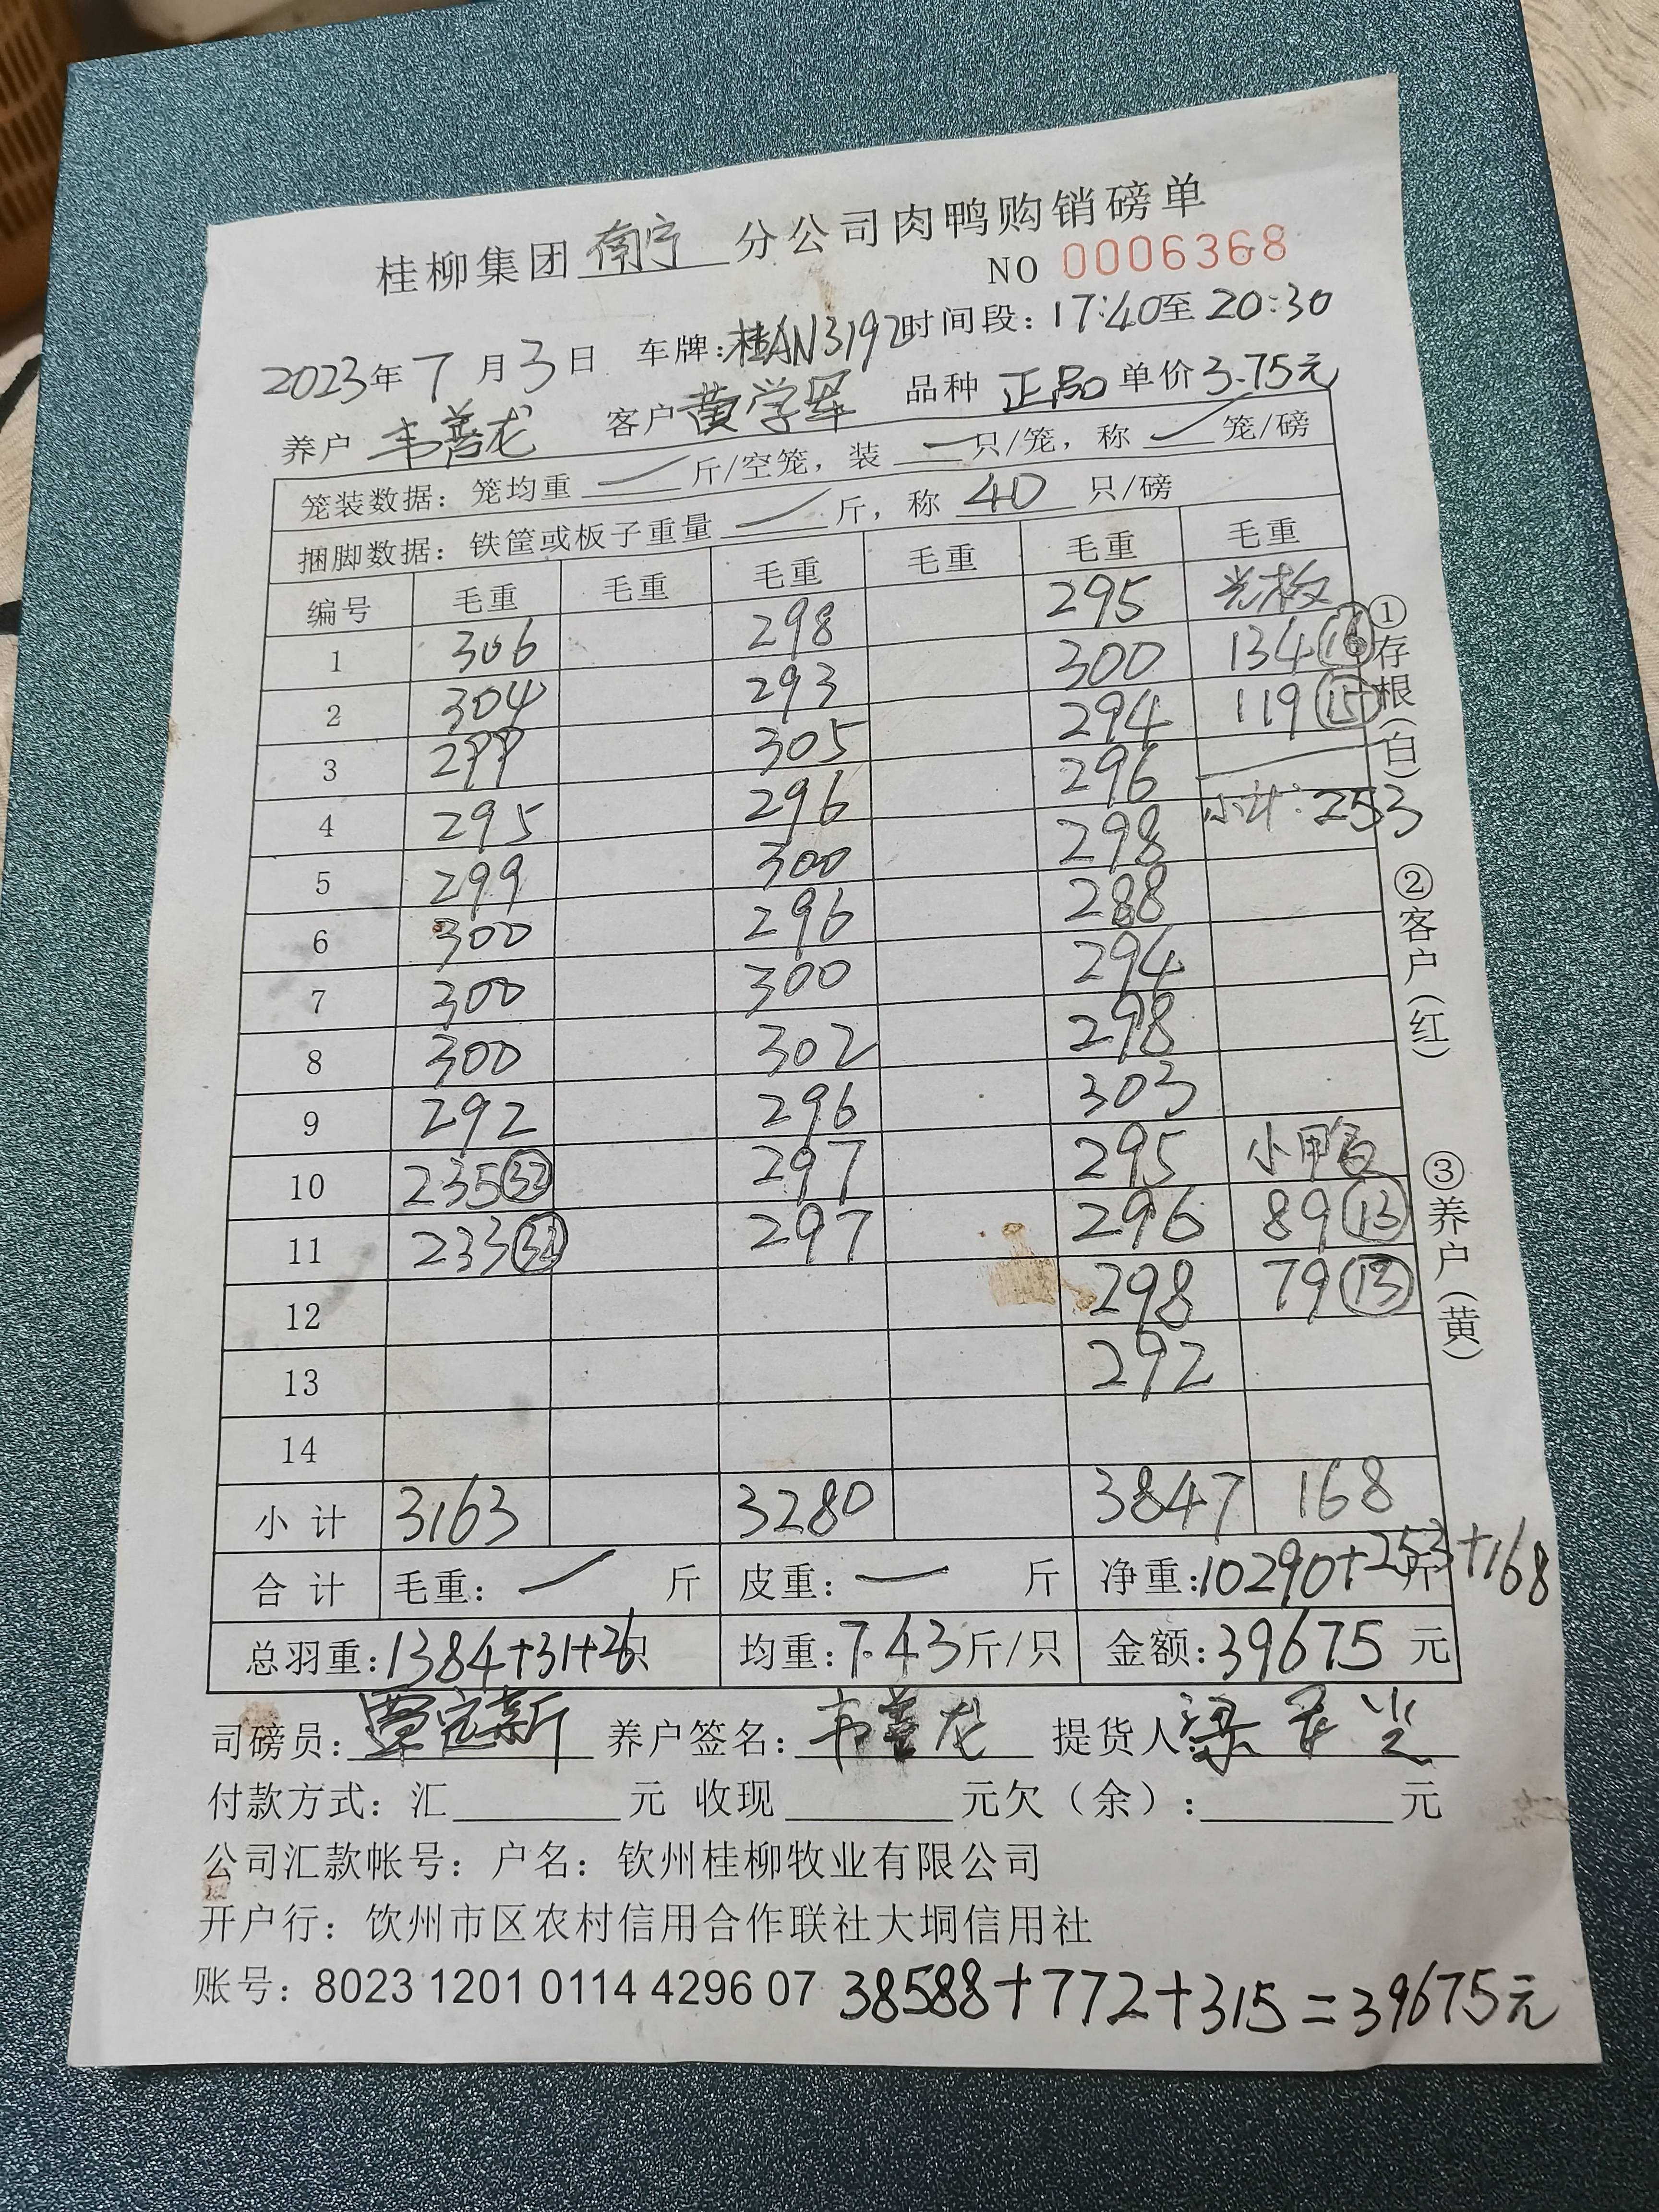 桂柳集团 南宁 分公司肉鸭购销磅单
NO 0006368
2023年 7 月 3 日 车牌:桂AN3192 时间段: 17:40 至 20:30
养户 韦善龙 客户 黄学军 品种 正品 单价 3.75元
笼装数据: 笼均重 斤/空笼, 装 只/笼, 称 笼/磅
捆脚数据: 铁筐或板子重量 斤, 称 40 只/磅
编号 毛重 毛重 毛重 毛重 毛重 毛重
295 光板
1 306 298 300 134 16
2 304 293 294 119 15
3 299 305 296
4 295 296 298 小计: 253
5 299 300 288
6 300 296 294
7 300 300 298
8 300 302 303
9 292 296 295 小鸭
10 235 32 297 296 89 13
11 233 32 297 298 79 13
12 292
13
14
小计 3163 3280 3847 168
合计 毛重: 斤 皮重: 斤 净重: 10290+253+168 斤
总羽重: 1384+31+26 只 均重: 7.43 斤/只 金额: 39675 元
司磅员: 覃定新 养户签名: 韦善龙 提货人 梁
付款方式: 汇 元 收现 元欠(余): 元
公司汇款帐号: 户名: 钦州桂柳牧业有限公司
开户行: 饮州市区农村信用合作联社大垌信用社
账号: 8023 1201 0114 4296 07 38588+772+315=39675元
①存根(白) ②客户(红) ③养户(黄)